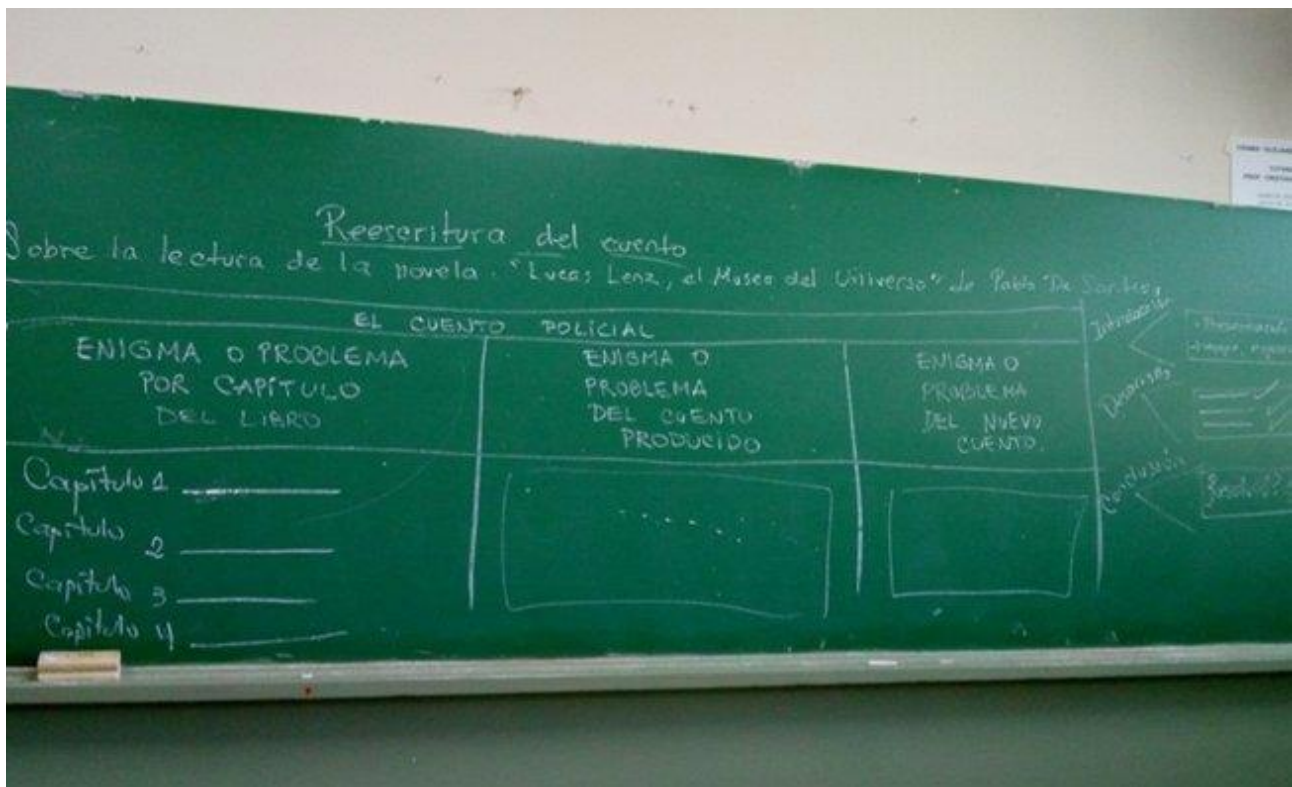 Reescritura del cuento
Sobre la lectura de la novela. "Lucas Lenz, el Museo del Universo" de Pablo De Santis
EL CUENTO POLICIAL
ENIGMA O PROBLEMA
POR CAPÍTULO
DEL LIBRO
ENIGMA O
PROBLEMA
DEL CUENTO
PRODUCIDO
ENIGMA O
PROBLEMA
DEL NUEVO
CUENTO.
Capítulo 1
Capítulo 2
Capítulo 3
Capítulo 4
Introducción
Desarrollo
Conclusión